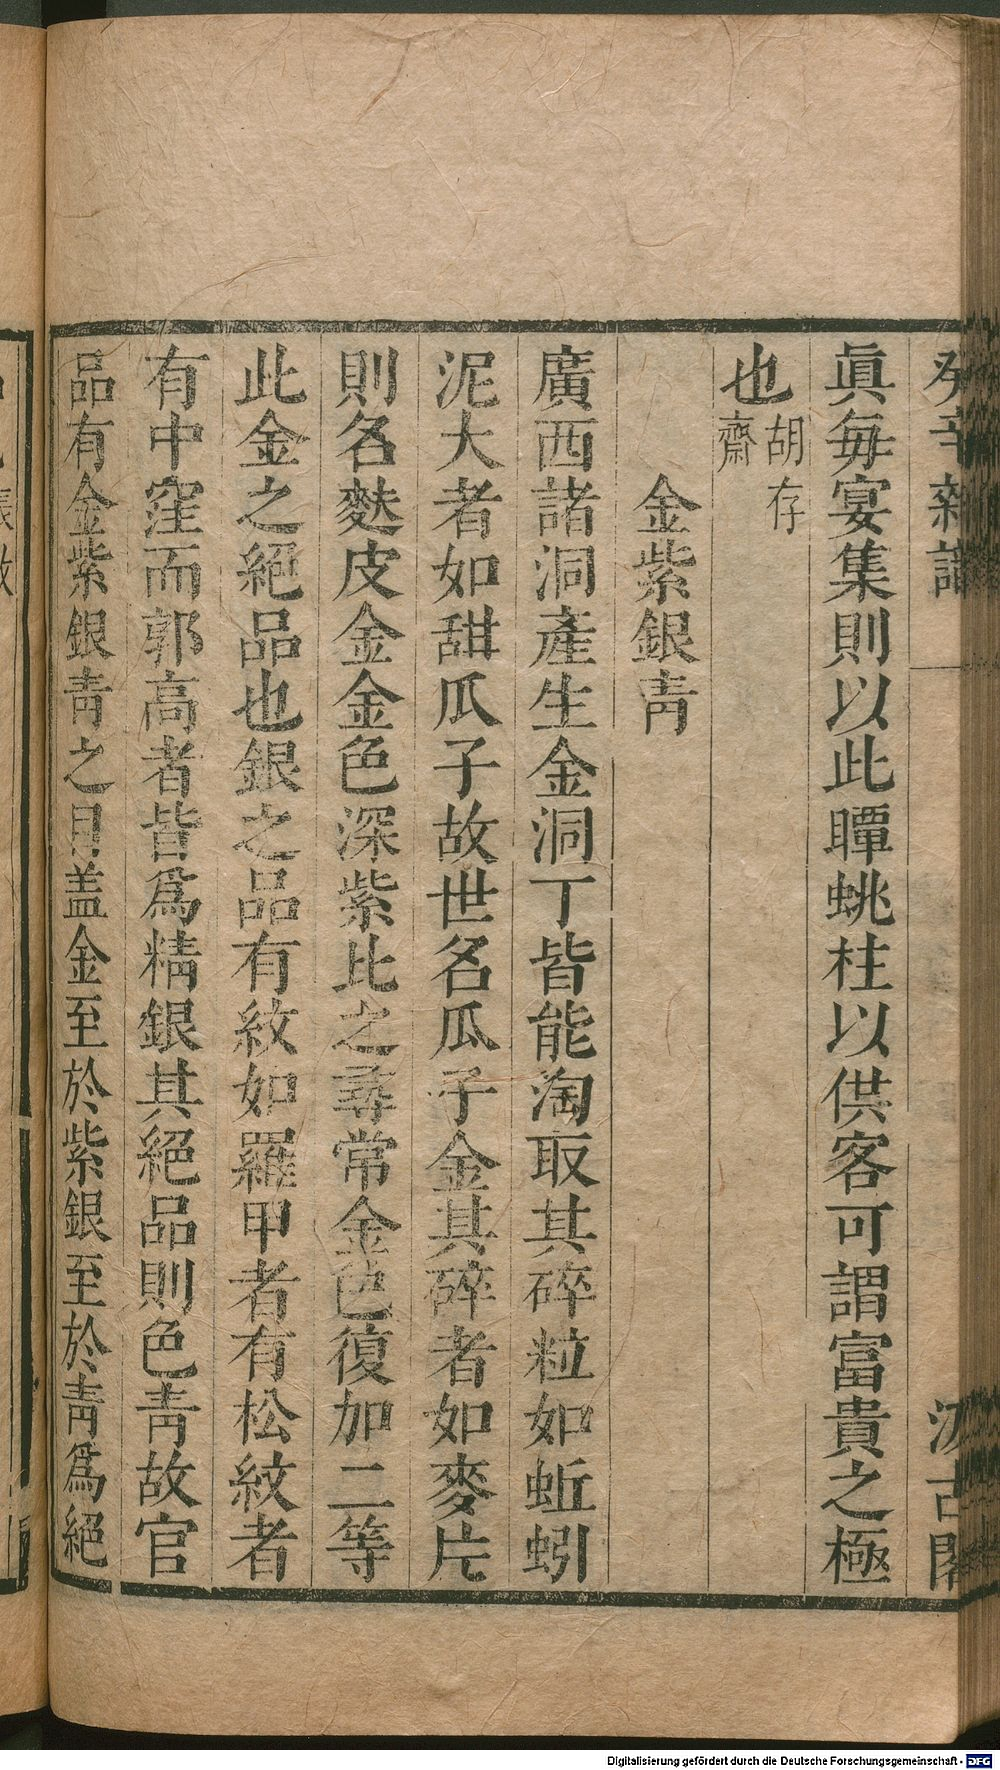 癸辛雜識
汲古閣
眞每宴集則以此瞫蛾柱以供客可謂富貴之極
也胡存齋
金紫銀靑
廣西諸洞產生金洞丁皆能淘取其碎粒如蚯蚓
泥大者如甜瓜子故世名瓜子金其碎者如麥片
則名麩皮金金色深紫比之尋常金色復加二等
此金之絕品也銀之品有紋如羅甲者有松紋者
有中窪而郭高者皆爲精銀其絕品則色靑故官
品有金紫銀靑之目盖金至於紫銀至於靑爲絕
Digitalisierung gefördert durch die Deutsche Forschungsgemeinschaft - DFG